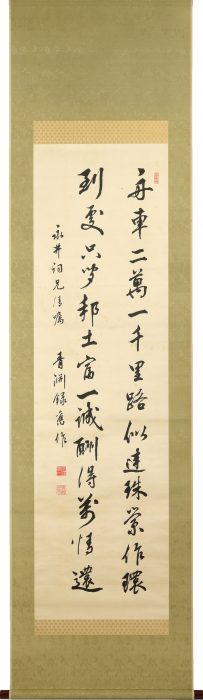 舟車二萬一千里路似連珠縈作環
到處只誇邦土富一誠酬得萬情還
永井詞兄清囑　青淵録舊作